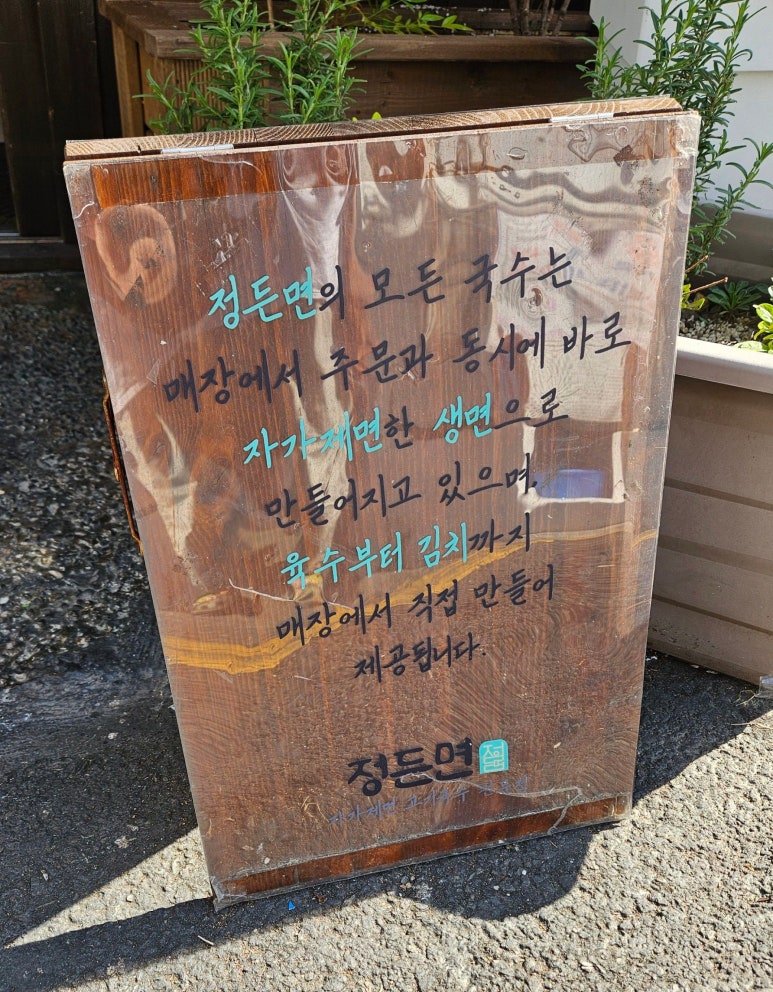 정든면의 모든 국수는
매장에서 주문과 동시에 바로
자가제면한 생면으로
만들어지고 있으며,
육수부터 김치까지
매장에서 직접 만들어
제공됩니다.
정든면
자가제면 고기국수